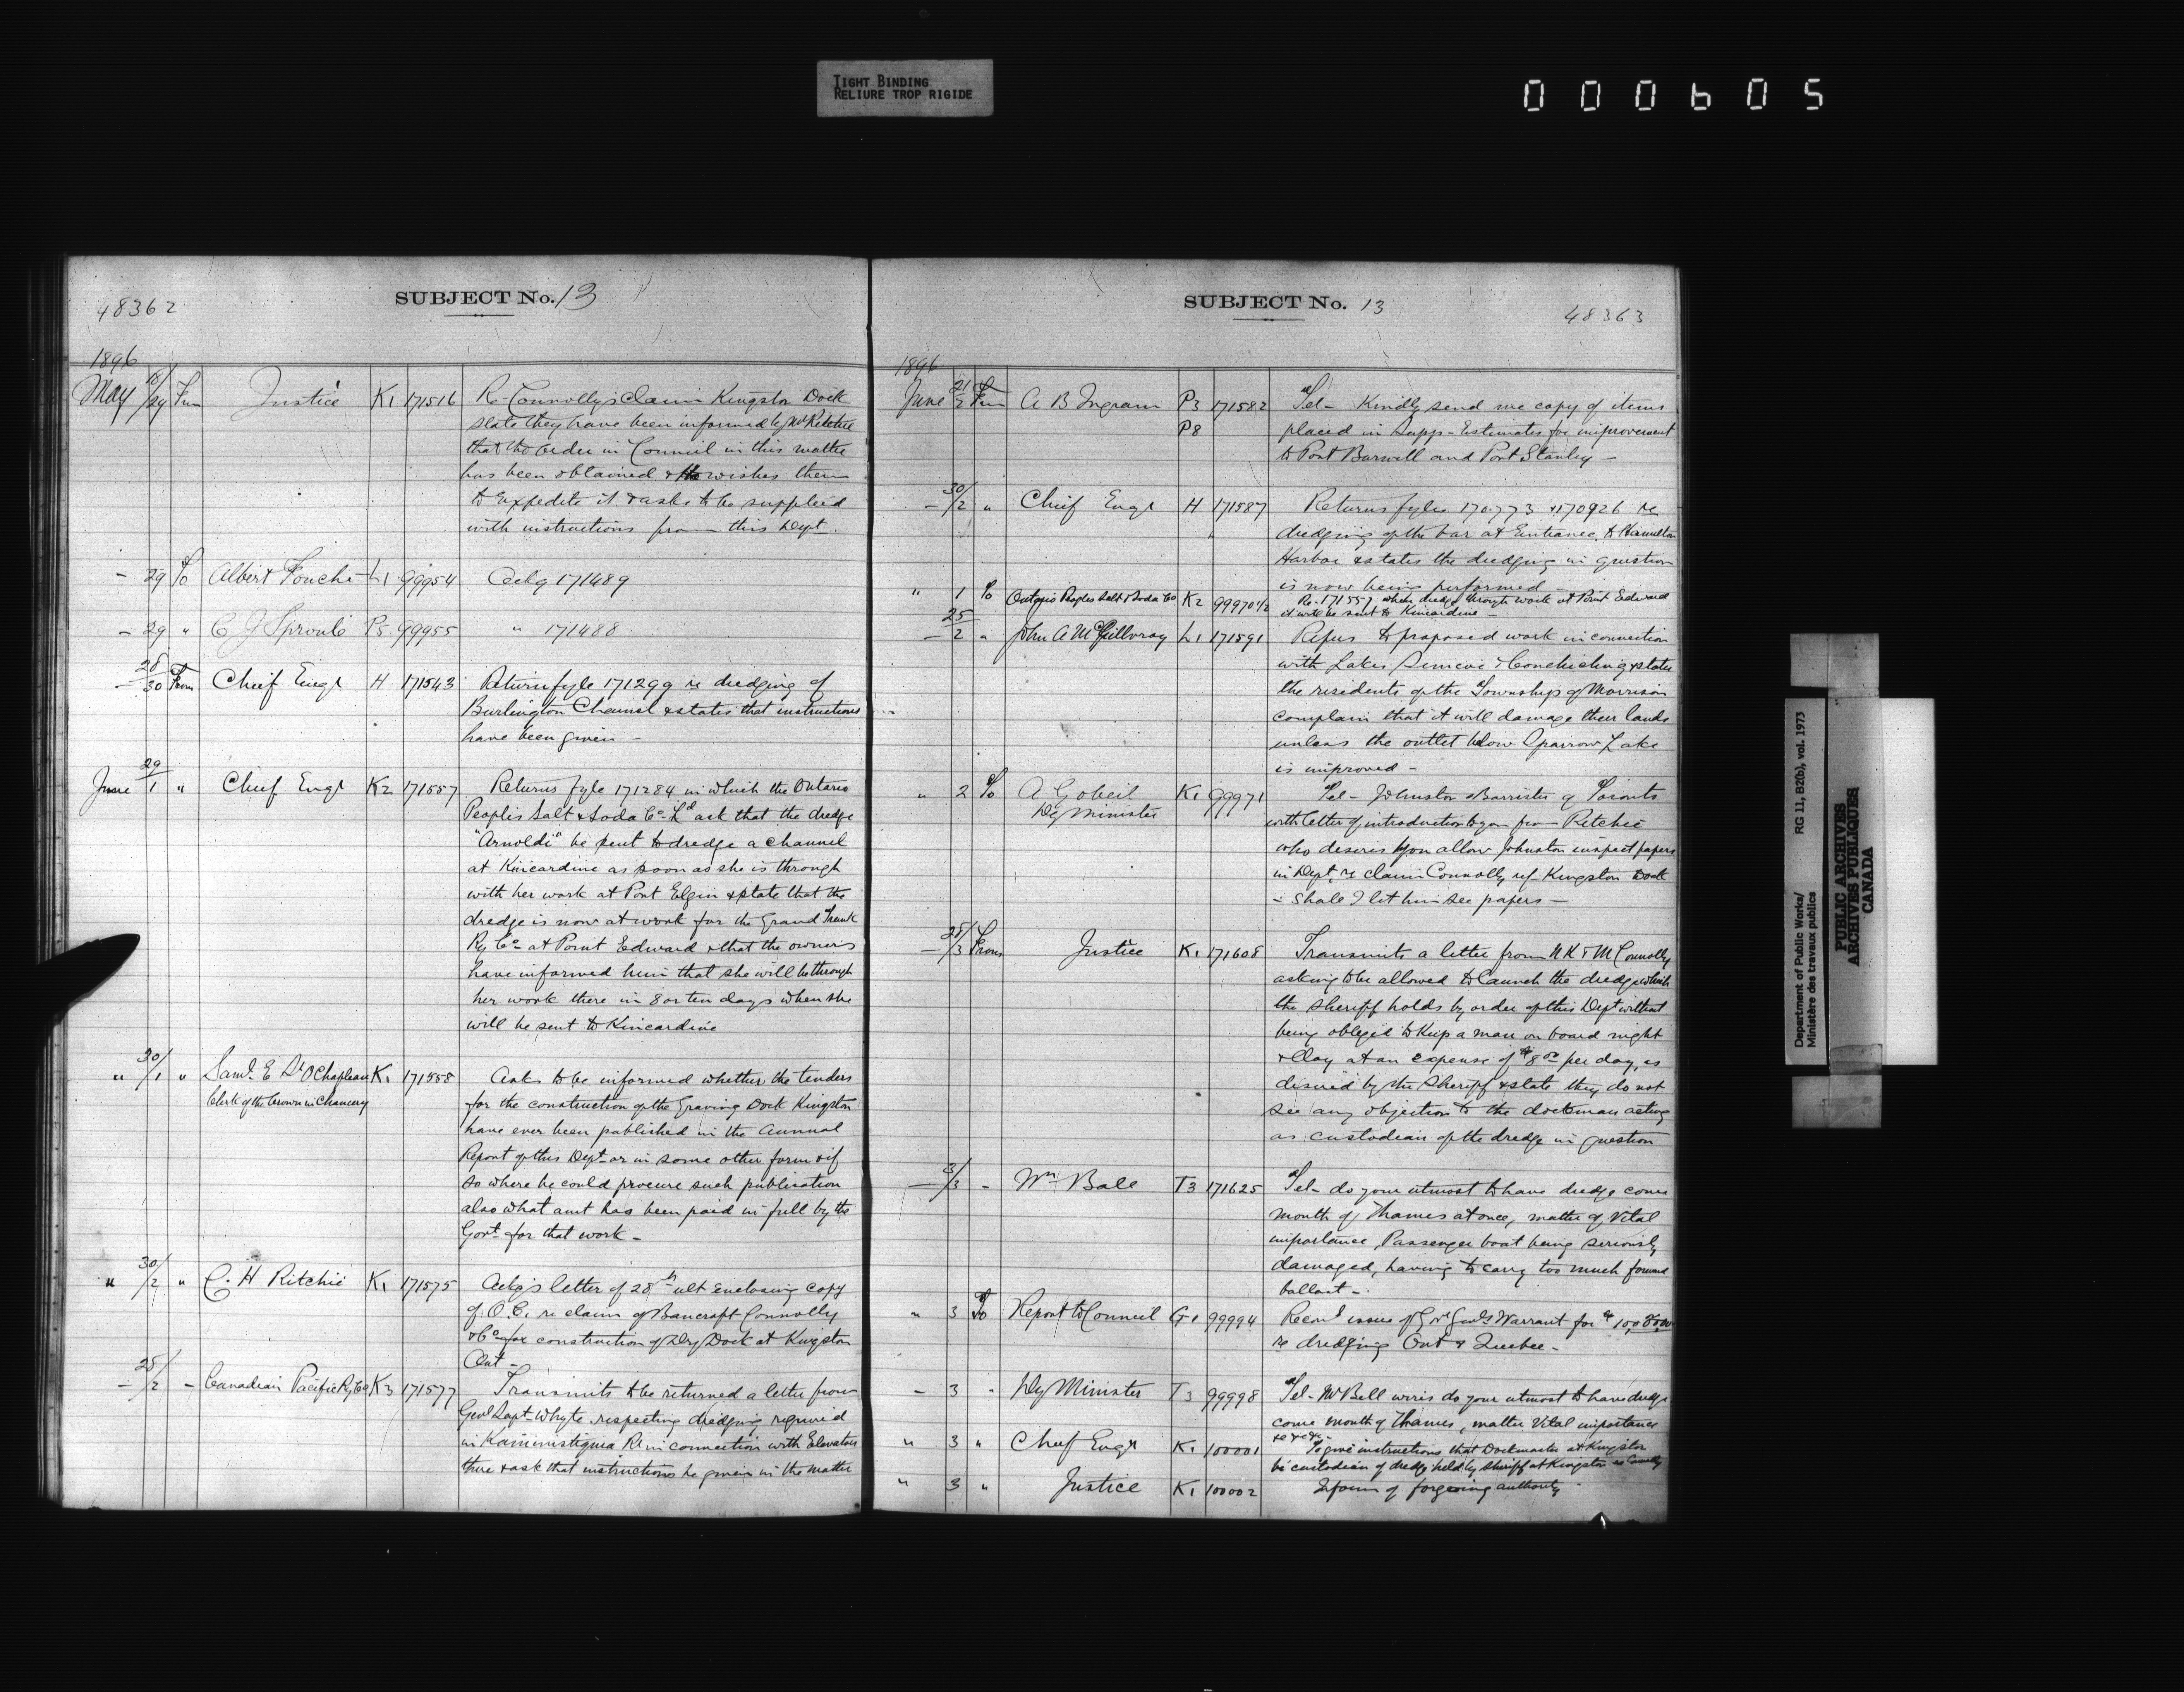 TIGHT BINDING
RELIURE TROP RIGIDE
000605
48362
SUBJECT No. 13
1896
May 18/29 From Justice K1 171516 Re Connolly's Claim Kingston Dock
state they have been informed by Mr Ritchie
that the Order in Council in this matter
has been obtained & He wishes them
to Expedite it & asks to be supplied
with instructions from this Dept.
- 29 To Albert Fouche L1 99954 Ackg 171489
- 29 " C J Sproule P5 99955 " 171488
- 28/30 From Chief Engr H 171543 Returns fyle 171299 re dredging of
Burlington Channel & states that instructions
have been given -
June 29/1 " Chief Engr K2 171557 Returns fyle 171284 in which the Ontario
Peoples Salt & Soda Co Ld ask that the dredge
"Arnoldi" be sent to dredge a channel
at Kincardine as soon as she is through
with her work at Port Elgin & state that the
dredge is now at work for the Grand Trunk
Ry Co at Point Edward & that the owners
have informed him that she will be through
her work there in 8 or ten days when she
will be sent to Kincardine
" 30/1 " Saml E St O Chapleau K1 171558 Asks to be informed whether the tenders
Clerk of the Crown in Chancery for the construction of the Graving Dock Kingston
have ever been published in the Annual
Report of this Dept or in some other form & if
so where he could procure such publication
also what amt has been paid in full by the
Govt for that work -
" 30/2 " C. H Ritchie K1 171575 Ackgs letter of 28th ult Enclosing copy
of O.C. re claim of Bancroft Connolly
& Co for construction of Dry Dock at Kingston
Ont -
- 28/2 - Canadian Pacific Ry Co K3 171577 Transmits to be returned a letter from
Genl Supt Whyte respecting dredging required
in Kaministiquia R in connection with Elevators
there & ask that instructions be given in the matter
SUBJECT No. 13
48363
1896
June 21/2 From A B Ingram P3 171582 Tel - Kindly send me copy of items
P8 placed in Supp - Estimates for improvement
to Port Burwell and Port Stanley -
- 30/2 " Chief Engr H 171587 Returns fyles 170773 & 170926 re
dredging of the bar at Entrance to Hamilton
Harbor & states the dredging in question
is now being performed -
" 1 To Ontario Peoples Salt & Soda Co K2 99970 1/2 Re - 171557 when dredge through work at Point Edward
it will be sent to Kincardine -
- 25/2 " John A McGillivray L1 171591 Refers to proposed work in connection
with Lakes Simcoe & Couchiching & states
the residents of the Township of Morrison
complain that it will damage their lands
unless the outlet below Sparrow Lake
is improved -
" 2 To A Gobeil K1 99971 Tel - Johnston Barrister of Toronto
Dy Minister with letter of introduction to you from Ritchie
who desires you allow Johnston inspect papers
in Dept re claim Connolly ref Kingston Dock
- Shall I let him see papers -
- 28/3 From Justice K1 171608 Transmits a letter from N K & M Connolly
asking to be allowed to launch the dredge which
the Sheriff holds by order of this Dept without
being obliged to keep a man on board night
& day at an expense of $8.00 per day, as
desired by the Sheriff & state they do not
see any objection to the dockman acting
as custodian of the dredge in question
- 3/3 - Wm Ball T3 171625 Tel - do your utmost to have dredge come
mouth of Thames at once, matter of Vital
importance, Passenger boat being seriously
damaged, having to carry too much forward
ballast -
" 3 To Report to Council G1 99994 Recomd issue of Govr Genls Warrant for
re dredging Ont & Quebec -
- 3 " Dy Minister T3 99998 Tel - Mr Bell wires do your utmost to have dredge
come mouth of Thames, matter Vital importance
&c &c &c -
" 3 " Chief Engr K1 100001 To give instructions that Dockmaster at Kingston
be custodian of dredge held by Sheriff at Kingston
" 3 " Justice K1 100002 Inform of forgoing authority
Department of Public Works/ RG 11, B2(b), vol. 1973
Ministère des travaux publics
PUBLIC ARCHIVES
ARCHIVES PUBLIQUES
CANADA